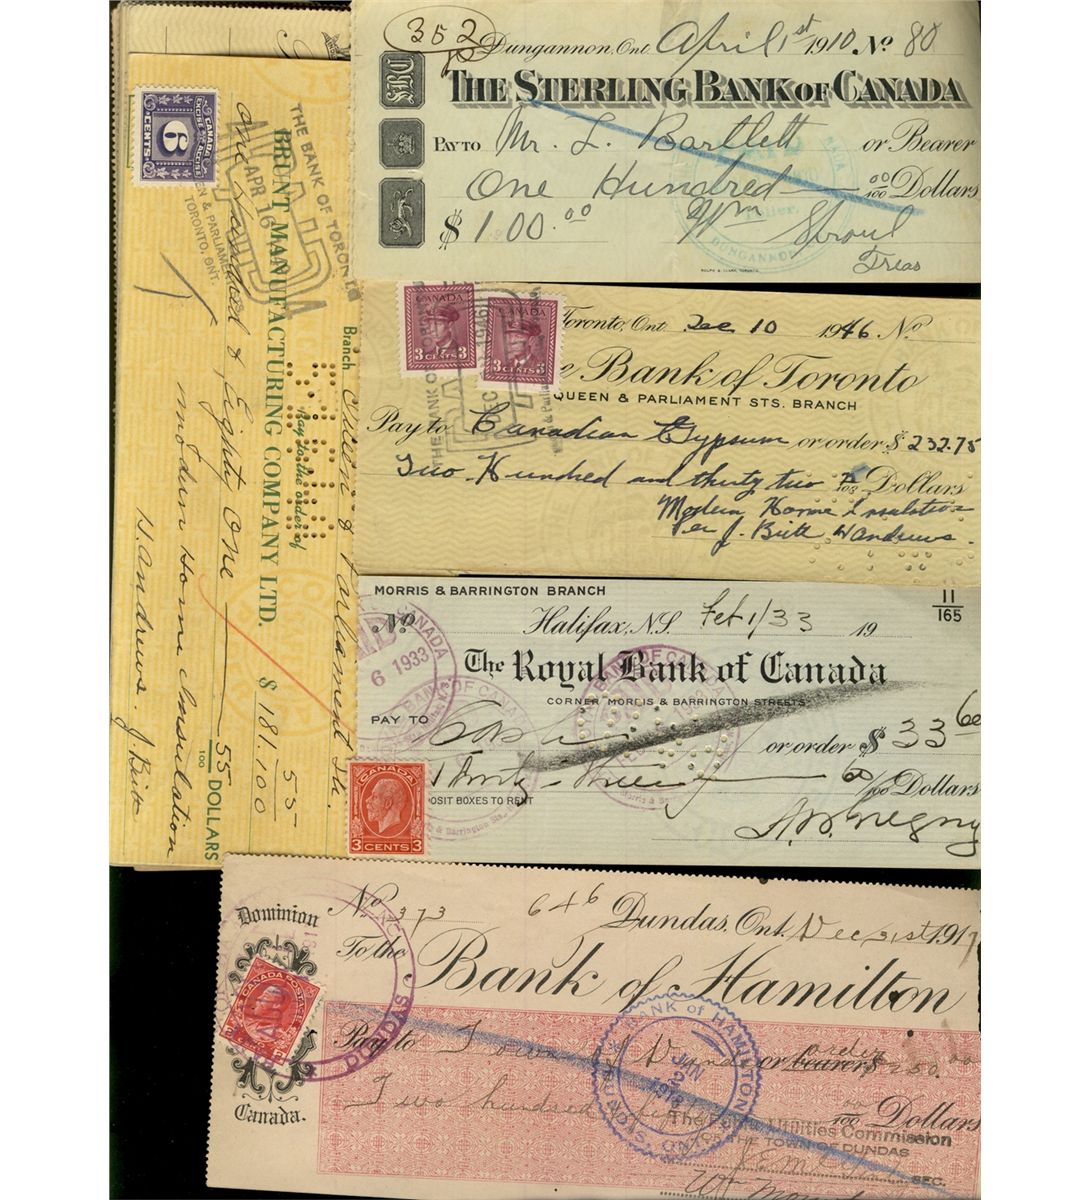 352
Dungannon, Ont. April 1st 1910 No. 80
SBC
THE STERLING BANK OF CANADA
PAY TO Mr. L. Bartlett or Bearer
One Hundred 00/100 Dollars
$ 100.00 Wm Sproul
Treas
ROLPH & CLARK, TORONTO.
CANADA
EXCISE ACCISE
6
CENTS
THE BANK OF TORONTO
APR 16
QUEEN & PARLIAMENT
TORONTO, ONT.
Branch Queen & Parliament Sts.
Pay to the order of
BRUNT MANUFACTURING COMPANY LTD. $ 181.55/100
One Hundred & Eighty One 55/100 DOLLARS
Modern Home Insulation
H. Andrews. J. Britt
CANADA
3 CENTS 3
CANADA
3 CENTS 3
Toronto, Ont. Dec 10 1946 No
The Bank of Toronto
QUEEN & PARLIAMENT STS. BRANCH
Pay to Canadian Gypsum or order $ 232.75
Two Hundred and thirty two 75/100 Dollars
Modern Home Insulation
Per J. Britt H Andrews.
MORRIS & BARRINGTON BRANCH
11/165
No. Halifax, N.S. Feb 1/33 19
6 1933
The Royal Bank of Canada
CORNER MORRIS & BARRINGTON STREETS
PAY TO or order $ 33.60
Thirty-Three 60/100 Dollars
DEPOSIT BOXES TO RENT
CANADA
3 CENTS 3
No. 373 646 Dundas, Ont. Dec 31st 1917
Dominion
To the
Bank of Hamilton
CANADA POSTAGE
Pay to Town of Dundas or bearer order $ 250.00
Two hundred fifty 00/100 Dollars
BANK OF HAMILTON
JAN 2 1918
DUNDAS
Canada.
The Public Utilities Commission
OF THE TOWN OF DUNDAS
SEC.